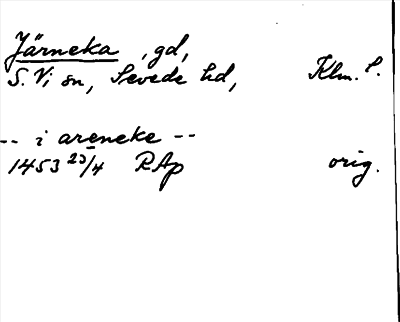 Järneka, gd,
S. Vi sn, Sevede hd, Klm. l.
-- i areneke --
1453 23/4 RAp orig.